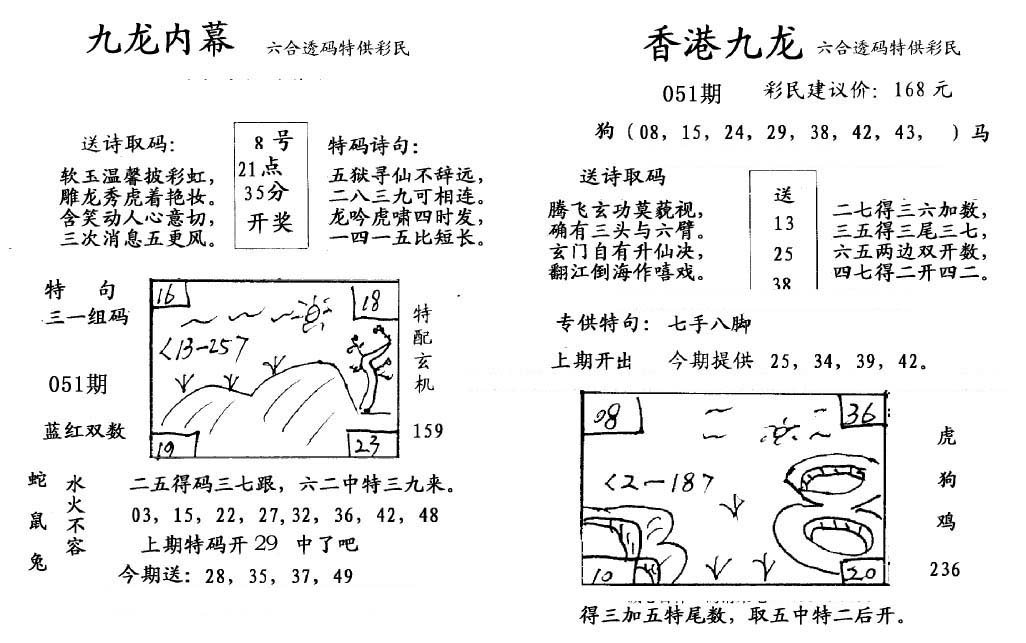 九龙内幕 六合透码特供彩民
送诗取码：
软玉温馨披彩虹，
雕龙秀虎着艳妆。
含笑动人心意切，
三次消息五更风。
8号
21点
35分
开奖
特码诗句：
五狱寻仙不辞远，
二八三九可相连。
龙吟虎啸四时发，
一四一五比短长。
特 句
三一组码
051期
蓝红双数
16
18
<13-25>
19
23
特配玄机
159
蛇鼠兔
水火不容
二五得码三七跟，六二中特三九来。
03，15，22，27，32，36，42，48
上期特码开29 中了吧
今期送：28，35，37，49
香港九龙 六合透码特供彩民
051期 彩民建议价：168元
狗（08，15，24，29，38，42，43， ）马
送诗取码
腾飞玄功莫藐视，
确有三头与六臂。
玄门自有升仙决，
翻江倒海作嘻戏。
送
13
25
38
二七得三六加数，
三五得三尾三七，
六五两边双开数，
四七得二开四二。
专供特句：七手八脚
上期开出 今期提供 25，34，39，42。
08
36
<2-18>
10
20
虎
狗
鸡
236
得三加五特尾数，取五中特二后开。